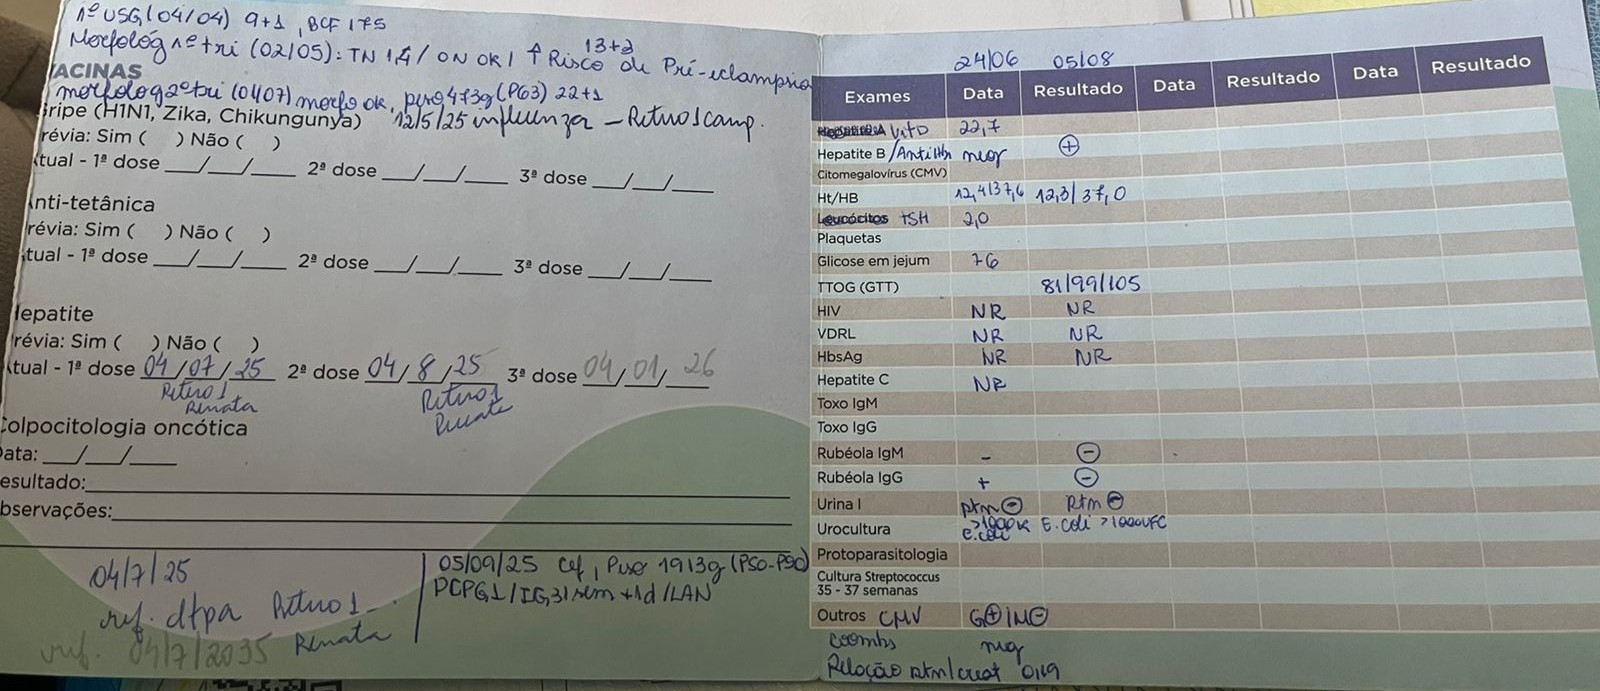 1º USG (04/04) 9+1, BCF 175
Morfológ 1º tri (02/05): TN 1,4 / ON OK / ↑ Risco de Pré-eclampsia 13+2
VACINAS
morfolog 2º tri (04/07) morfo ok, peso 473g (P63) 22+1
Gripe (H1N1, Zika, Chikungunya) 12/5/25 influenza - Retiro 1 camp.
Prévia: Sim ( ) Não ( )
Atual - 1ª dose ___/___/___ 2ª dose ___/___/___ 3ª dose ___/___/___
Anti-tetânica
Prévia: Sim ( ) Não ( )
Atual - 1ª dose ___/___/___ 2ª dose ___/___/___ 3ª dose ___/___/___
Hepatite
Prévia: Sim ( ) Não ( )
Atual - 1ª dose 04/07/25 2ª dose 04/8/25 3ª dose 04/01/26
Retiro 1 Retiro 1
Renata Renata
Colpocitologia oncótica
Data: ___/___/___
Resultado:
Observações:
04/7/25
ref. dtpa Retiro 1
Renata
ref. 04/7/2035
05/09/25 Cef, Peso 1913g (P50-P90)
PCPG1 / IG 31 sem +1d / LAN
24/06 05/08
Exames Data Resultado Data Resultado Data Resultado
Vit D 22,7
Hepatite B / Anti Hbs neg ⊕
Citomegalovírus (CMV)
Ht/HB 12,4/37,6 12,3/37,0
Leucócitos TSH 2,0
Plaquetas
Glicose em jejum 76
TTOG (GTT) 81/99/105
HIV NR NR
VDRL NR NR
HbsAg NR NR
Hepatite C NR
Toxo IgM
Toxo IgG
Rubéola IgM - ⊖
Rubéola IgG + ⊖
Urina I ptn ⊖ Ptn ⊖
Urocultura E.coli E.coli >1000UFC
Protoparasitologia
Cultura Streptococcus
35 - 37 semanas
Outros CMV G⊕ IM⊖
coombs neg
Relação ptn/creat 0,19